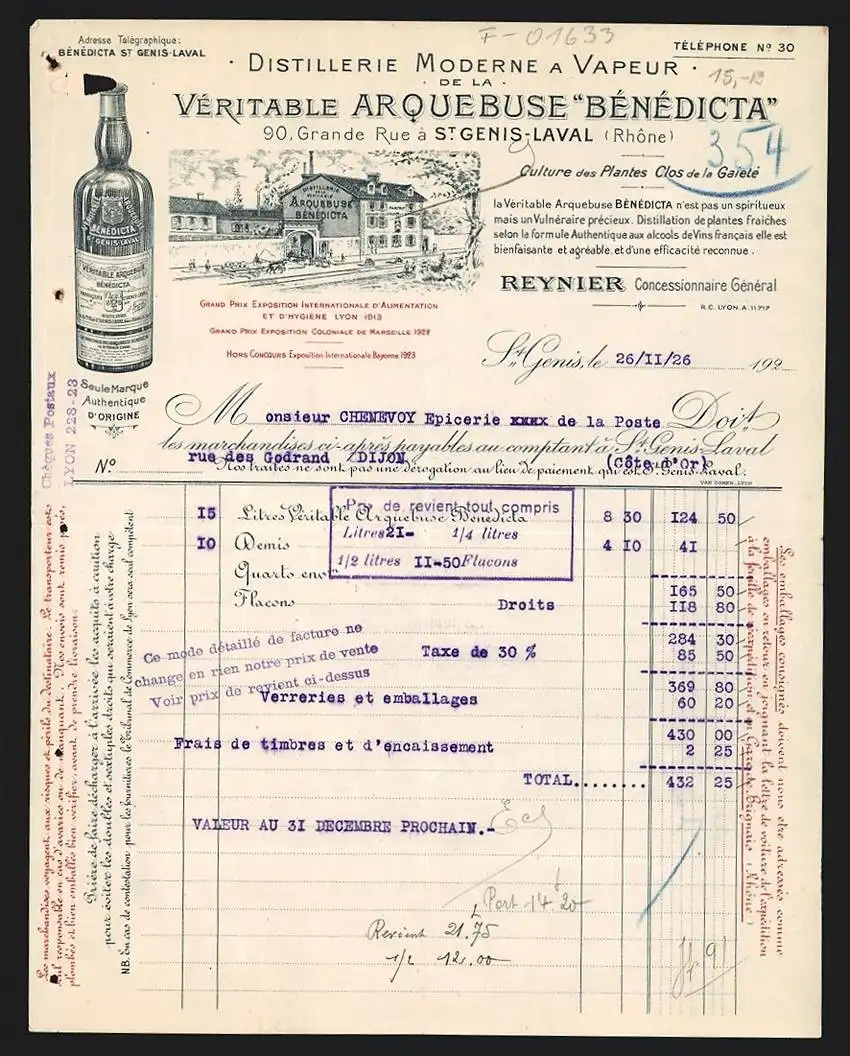 F-01633
Adresse Télégraphique:
BÉNÉDICTA ST GENIS-LAVAL
TÉLÉPHONE Nº 30
15,-
DISTILLERIE MODERNE A VAPEUR
DE LA
VÉRITABLE ARQUEBUSE "BÉNÉDICTA"
90, Grande Rue à ST GENIS-LAVAL (Rhône)
354
Culture des Plantes Clos de la Gaieté
la Véritable Arquebuse BÉNÉDICTA n'est pas un spiritueux
mais un Vulnéraire précieux. Distillation de plantes fraîches
selon la formule Authentique aux alcools de Vins français elle est
bienfaisante et agréable, et d'une efficacité reconnue.
REYNIER Concessionnaire Général
R.C. LYON. A. 11717
DISTILLERIE
DE LA
VÉRITABLE
ARQUEBUSE
BÉNÉDICTA
ARQUEBUSE
BÉNÉDICTA
ST GENIS-LAVAL
VÉRITABLE ARQUEBUSE
BÉNÉDICTA
Seule Marque
Authentique
D'ORIGINE
GRAND PRIX EXPOSITION INTERNATIONALE D'ALIMENTATION
ET D'HYGIÈNE LYON 1913
GRAND PRIX EXPOSITION COLONIALE DE MARSEILLE 1922
HORS CONCOURS Exposition Internationale Bayonne 1923
St Genis, le 26/II/26 192
Chèques Postaux
LYON 228-23
Monsieur CHENEVOY Epicerie xxxx de la Poste Doit
les marchandises ci-après payables au comptant à St Genis-Laval
rue des Godrand /DIJON (Côte d'Or)
Nº Nos traites ne sont pas une dérogation au lieu de paiement qui est St Genis-Laval.
VAN DOREN-LYON
Prix de revient tout compris
Litres 2I- 1/4 litres
1/2 litres II-50 Flacons
I5 Litres Véritable Arquebuse Bénédicta 8 30 I24 50
I0 Demis 4 I0 4I
Quarts env.
I65 50
Flacons Droits II8 80
284 30
Taxe de 30 % 85 50
Ce mode détaillé de facture ne
change en rien notre prix de vente
Voir prix de revient ci-dessus
369 80
Verreries et emballages 60 20
430 00
Frais de timbres et d'encaissement 2 25
TOTAL........ 432 25
VALEUR AU 3I DECEMBRE PROCHAIN.-
Port 14.20
Revient 21.75
1/2 12.00
Les marchandises voyagent aux risques et périls du destinataire. Le transporteur est
seul responsable en cas d'avaries ou de manquant. Nos envois sont remis pesés,
plombés et bien emballés bien vérifier, avant de prendre livraison.
Prière de faire décharger à l'arrivée les acquits à caution
pour éviter les doubles et sextuples droits qui seraient à votre charge
N.B. En cas de contestation pour les fournitures le Tribunal de Commerce de Lyon sera seul compétent
Les emballages consignés doivent nous être adressés comme
emballages en retour en joignant la lettre de voiture de l'expédition
à la feuille de réexpédition et en Gare de Brignais (Rhône)